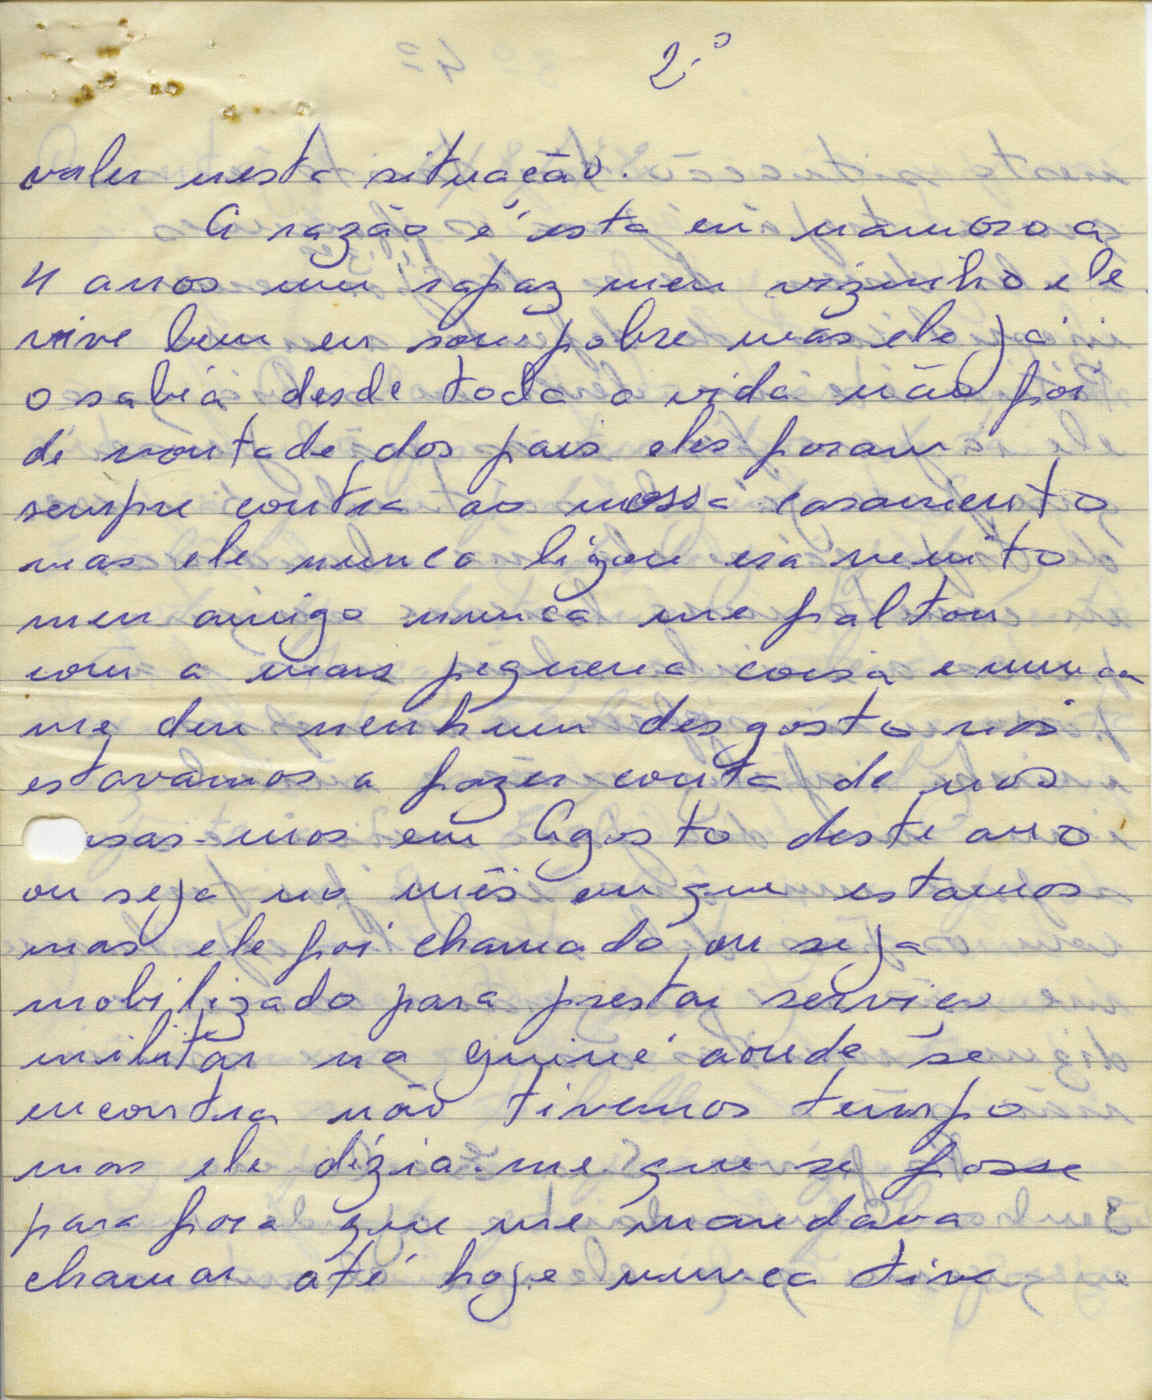 2.º
valer nesta situação.
A razão é esta eu namoro a
4 anos um rapaz meu vizinho ele
vive bem eu sou pobre mas ele já
o sabia desde toda a vida não foi
de vontade dos pais eles foram
sempre contra ao nossa casamento
mas ele nunca ligou era muito
meu amigo nunca me faltou
com a mais piquena coisa e nunca
me deu nenhum desgosto nós
estavamos a fazer conta de nos
sas-mos em Agosto deste ano
ou seja no mês em que estamos
mas ele foi chamado ou seja
mobilizado para prestar servico
militar na guiné aonde se
encontra não tivemos tempo
mas ele dizia-me que se fosse
para fora que me mandava
chamar até hoje nunca tive